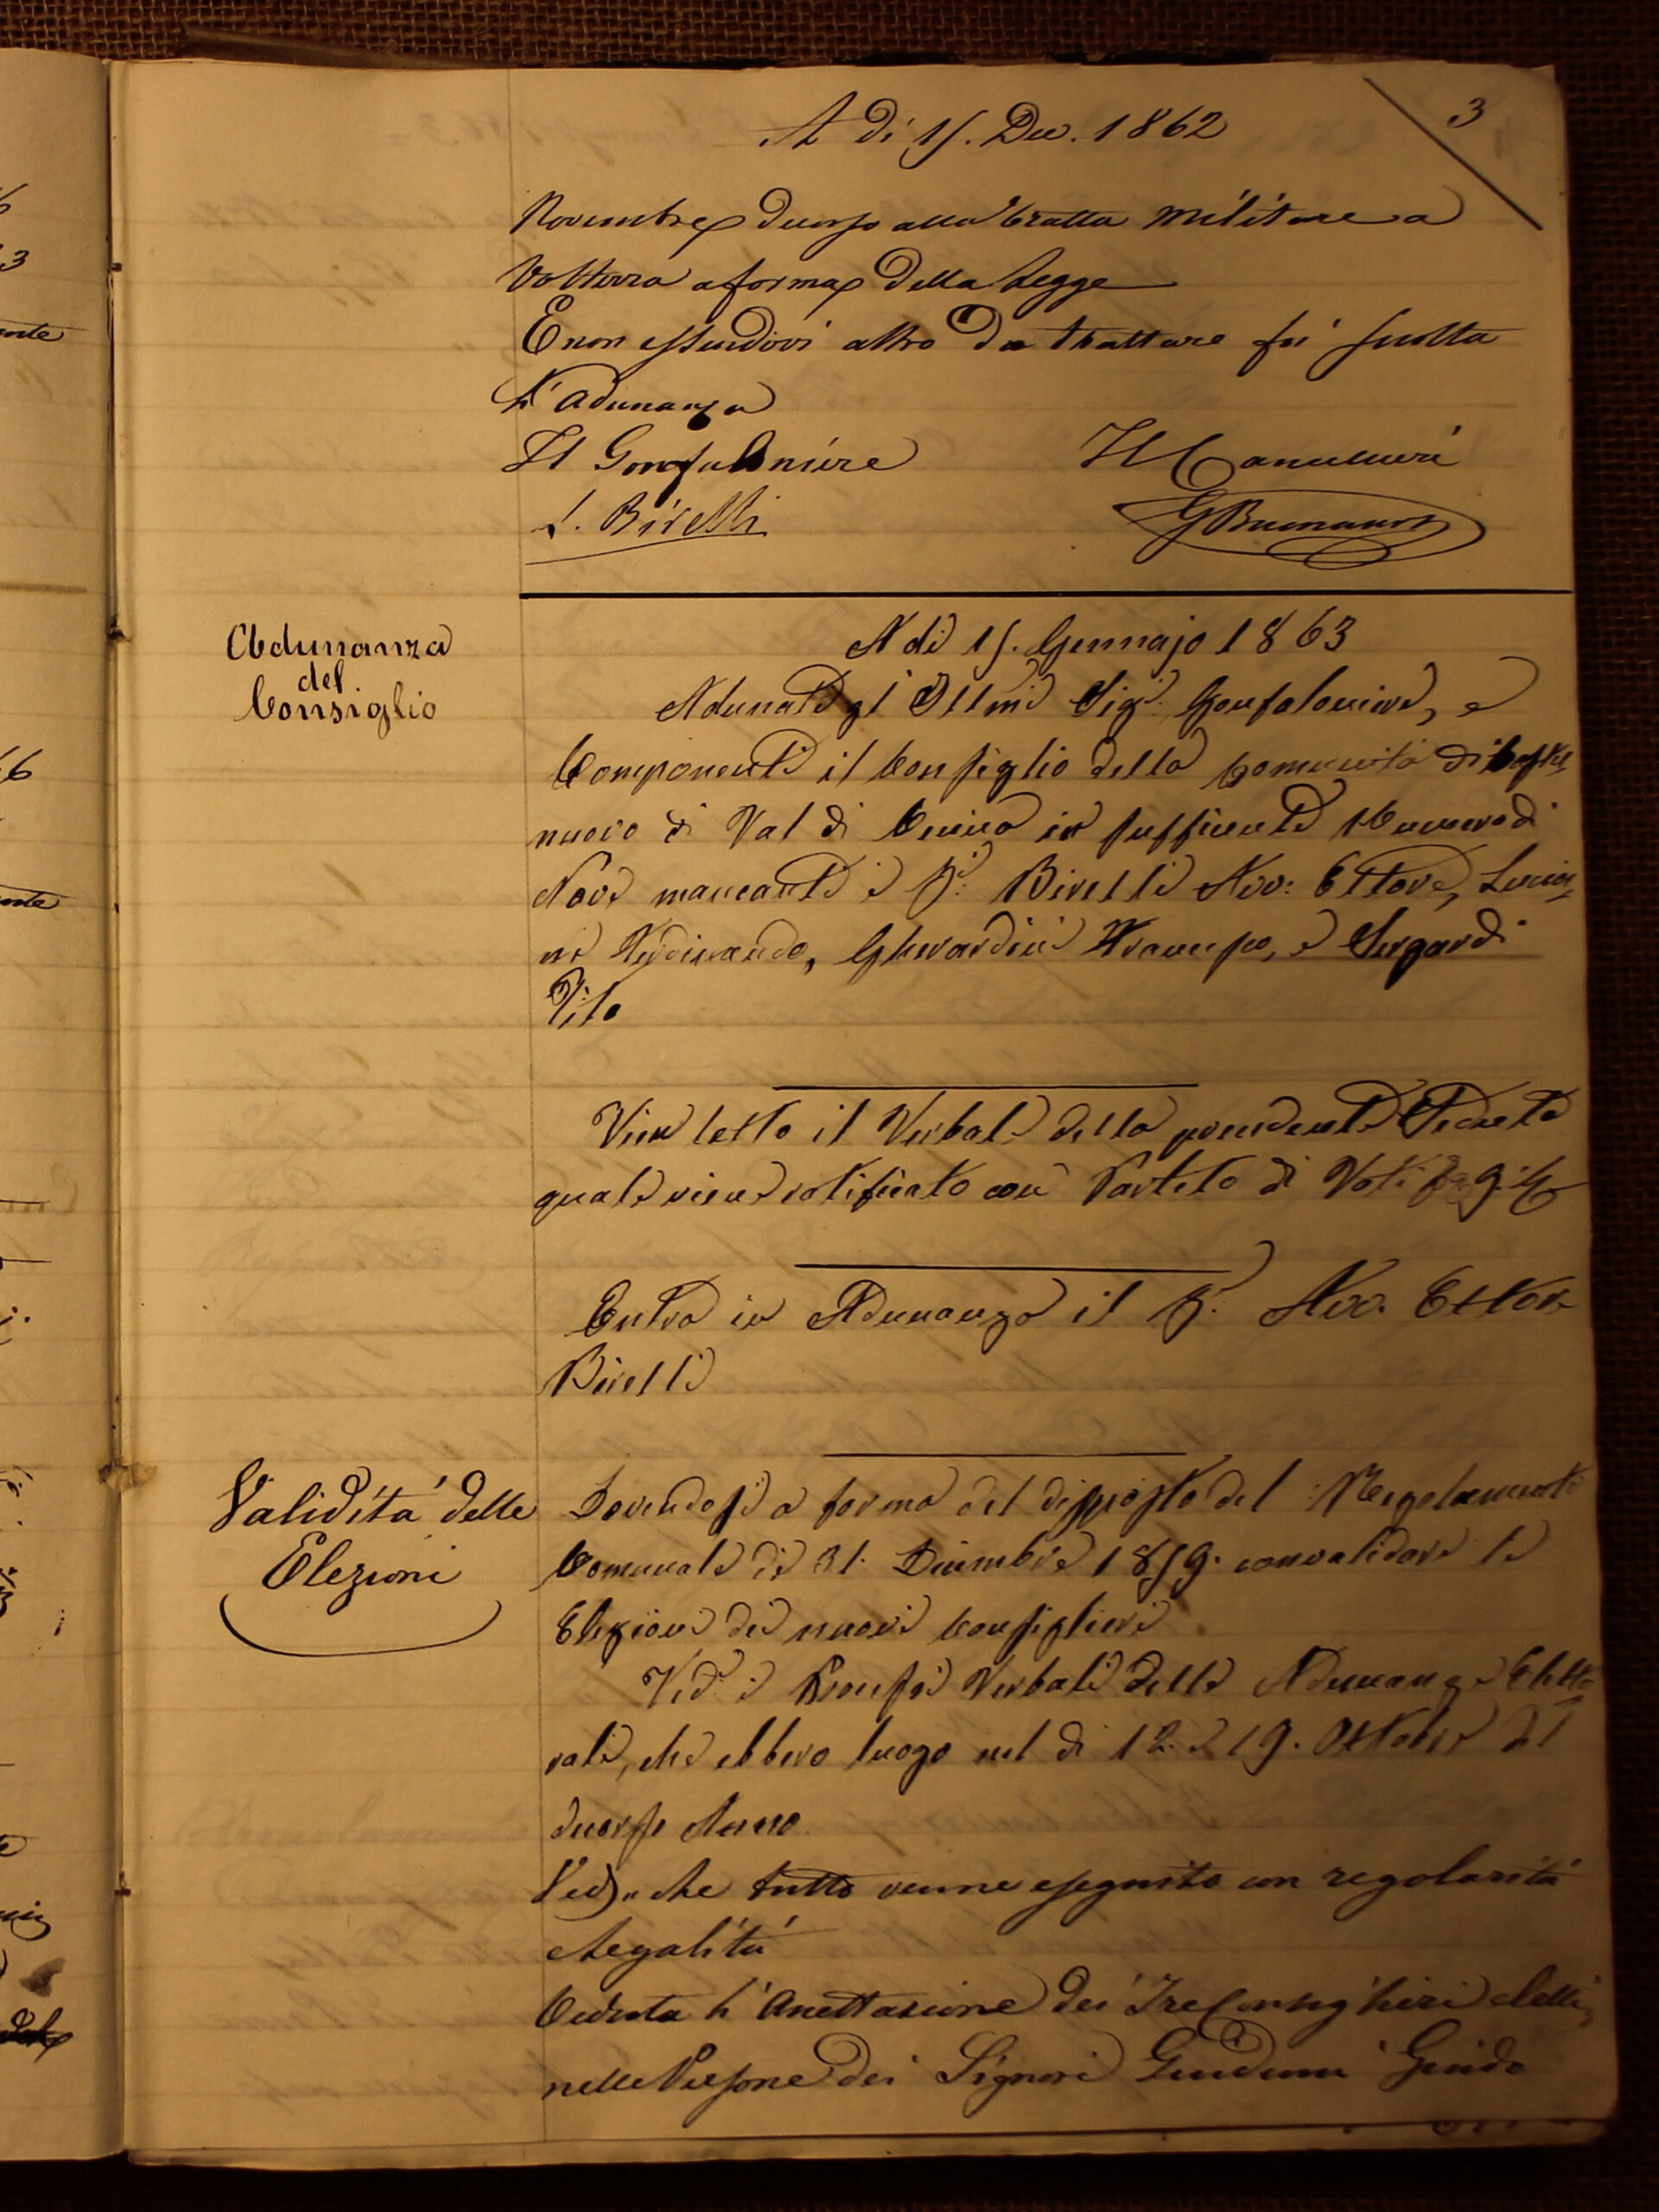 3
A dì 15. Dec. 1862
Novembre decorso alla tratta Militare a
Volterra a forma della Legge
E non essendovi altro da trattare fu sciolta
L'adunanza
Il Gonfaloniere Il Cancelliere
L. Birelli G
Adunanza
del
Consiglio
A dì 15. Gennajo 1863
Adunati gl'Illmi Sigi. Gonfaloniere, e
Componenti il Consiglio della Comunità di Castel
nuovo di Val di Cecina in sufficiente Numero di
Nove mancanti i Si. Birelli Avv: Ettore, Lucia
ni Ferdinando, Gherardini Francesco, e Sergardi
Tito
Vien letto il Verbale della precedente Seduta
quale viene ratificato con Partito di Voti 9.
Entra in Adunanza il S. Avv. Ettore
Birelli
Validità delle
Elezioni
Dovendosi a forma del disposto del Regolamento
Comunale de 31. Dicembre 1859. convalidare le
Elezioni dei nuovi Consiglieri
Vedi. i Processi Verbali delle Adunanze Eletto
rali, che ebbero luogo nel dì 12. e 19. Ottobre del
decorso Anno
Ved. che tutto venne eseguito con regolarità
e Legalità
Veduta l'Accettazione dei Tre Consiglieri eletti
nelle Persone dei Signori Guido